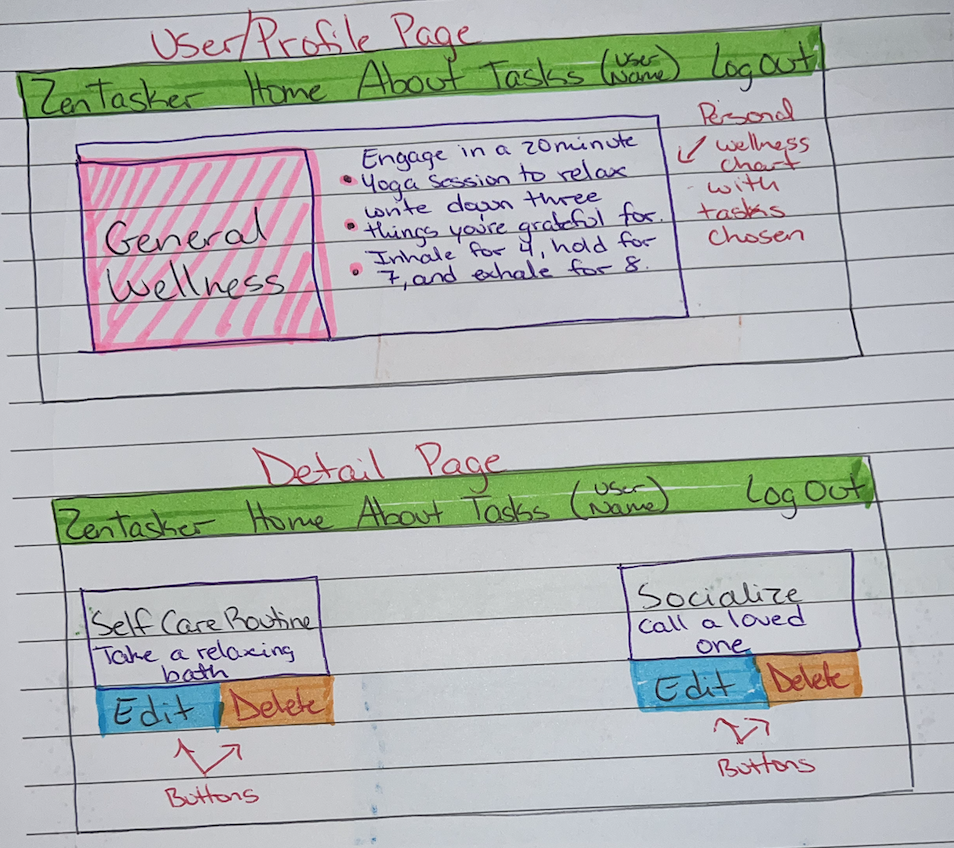 User/Profile Page
ZenTasker Home About Tasks (User Name) Log Out
General
Wellness
Engage in a 20 minute
• Yoga session to relax
write down three
• things you're grateful for.
Inhale for 4, hold for
• 7, and exhale for 8.
Personal
wellness
chart
with
tasks
chosen
Detail Page
ZenTasker Home About Tasks (User Name) Log Out
Self Care Routine
Take a relaxing
bath
Edit Delete
Buttons
Socialize
Call a loved
one
Edit Delete
Buttons